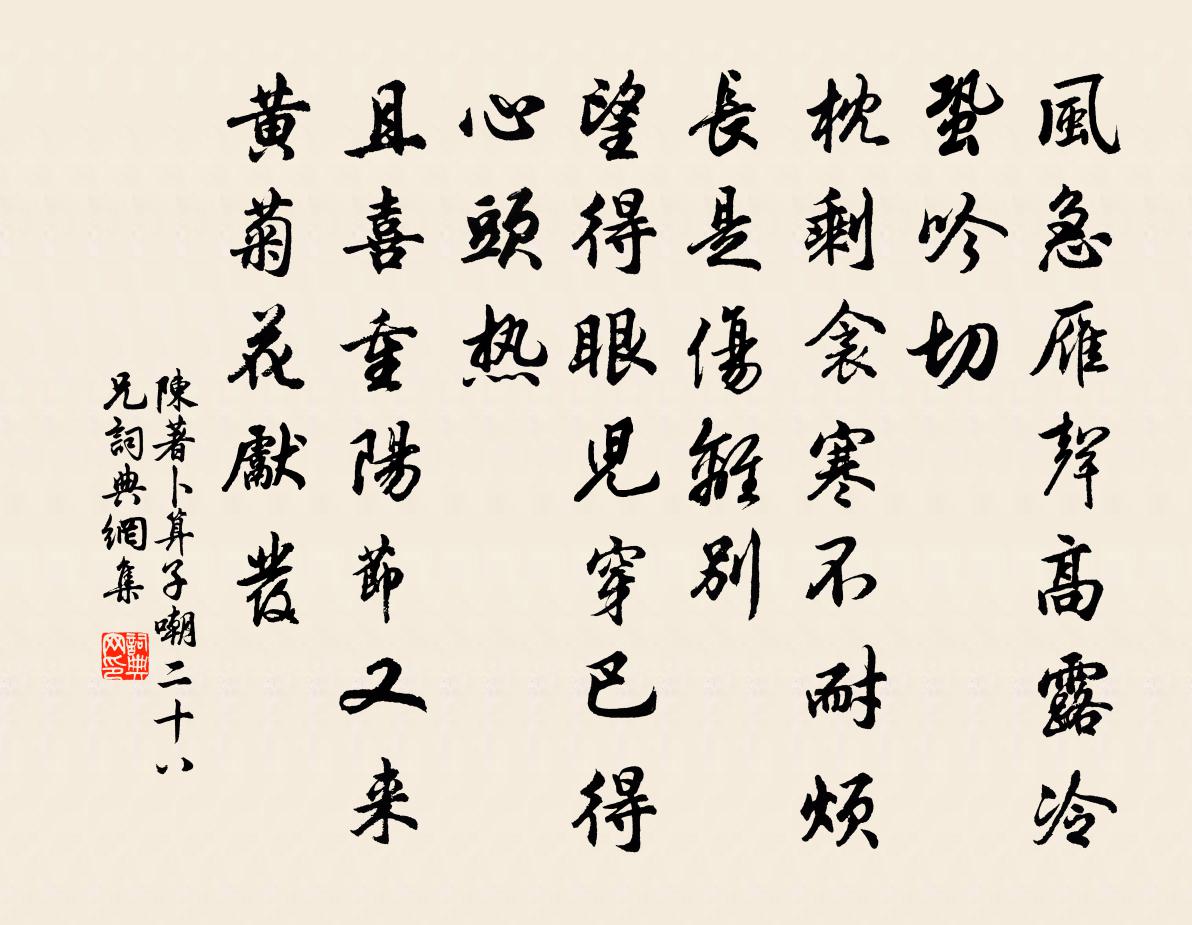 風急雁聲高露冷
蛩吟切
枕剩衾寒不耐煩
長是傷離別
望得眼兒穿巴得
心頭热
且喜重陽節又来
黄菊花獻發
陳著卜算子嘲二十八
兄詞典網集
詞典网印